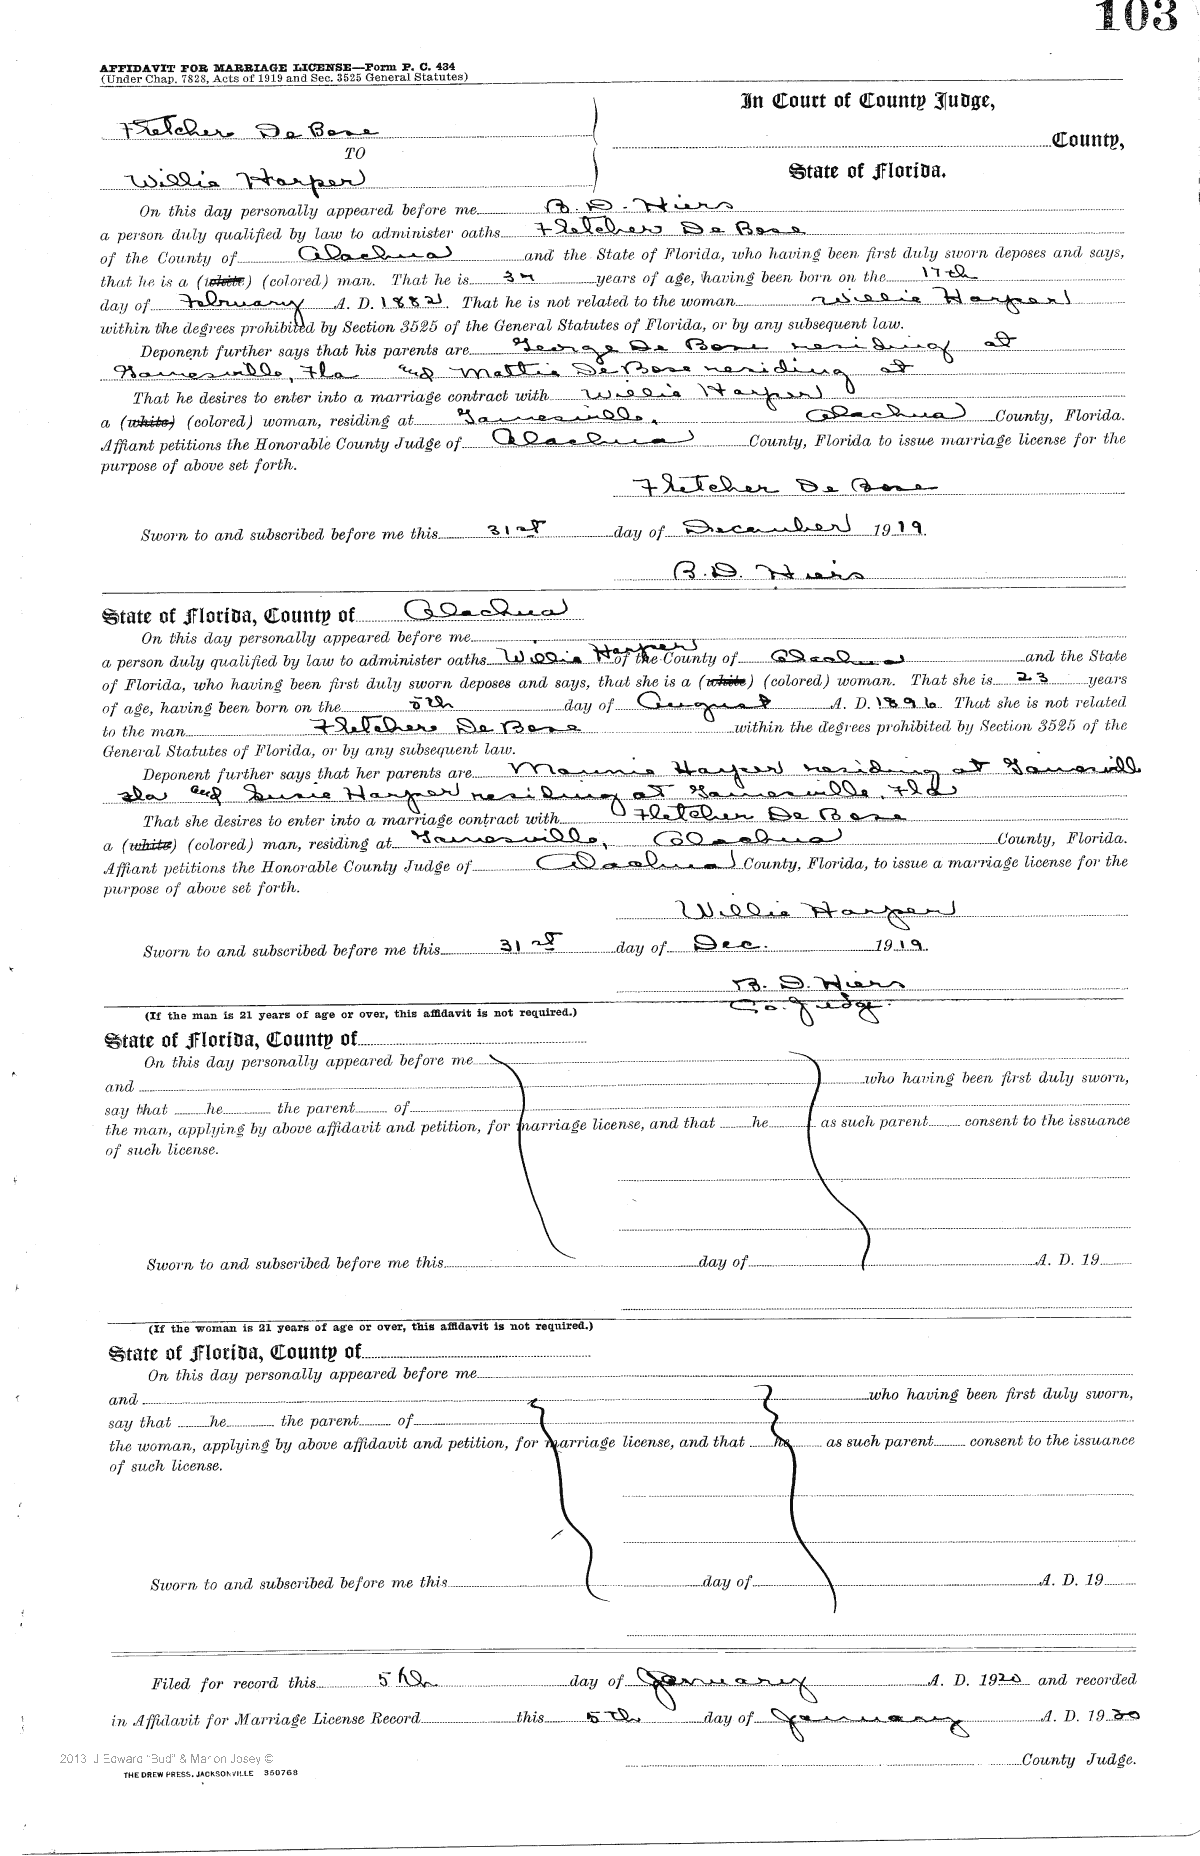 103
AFFIDAVIT FOR MARRIAGE LICENSE—Form P. C. 434
(Under Chap. 7828, Acts of 1919 and Sec. 3525 General Statutes)
In Court of County Judge,
Fletcher De Bose
County,
TO
State of Florida.
Willie Harper
On this day personally appeared before me B. D. Hiers
a person duly qualified by law to administer oaths Fletcher De Bose
of the County of Alachua and the State of Florida, who having been first duly sworn deposes and says,
that he is a (white) (colored) man. That he is 37 years of age, having been born on the 17th
day of February A. D. 1882 That he is not related to the woman Willie Harper
within the degrees prohibited by Section 3525 of the General Statutes of Florida, or by any subsequent law.
Deponent further says that his parents are George De Bose residing at
Gainesville, Fla and Mattie De Bose residing at
That he desires to enter into a marriage contract with Willie Harper
a (white) (colored) woman, residing at Gainesville, Alachua County, Florida.
Affiant petitions the Honorable County Judge of Alachua County, Florida to issue marriage license for the
purpose of above set forth.
Fletcher De Bose
Sworn to and subscribed before me this 31st day of December 1919.
B. D. Hiers
State of Florida, County of Alachua
On this day personally appeared before me
a person duly qualified by law to administer oaths Willie Harper of the County of Alachua and the State
of Florida, who having been first duly sworn deposes and says, that she is a (white) (colored) woman. That she is 23 years
of age, having been born on the 5th day of August A. D. 1896 That she is not related
to the man Fletcher De Bose within the degrees prohibited by Section 3525 of the
General Statutes of Florida, or by any subsequent law.
Deponent further says that her parents are Harper residing at Gainesvill
Fla and Susie Harper residing at Gainesville, Fla
That she desires to enter into a marriage contract with Fletcher De Bose
a (white) (colored) man, residing at Gainesville, Alachua County, Florida.
Affiant petitions the Honorable County Judge of Alachua County, Florida, to issue a marriage license for the
purpose of above set forth.
Willie Harper
Sworn to and subscribed before me this 31st day of Dec. 1919.
B. D. Hiers
Co. Judge.
(If the man is 21 years of age or over, this affidavit is not required.)
State of Florida, County of
On this day personally appeared before me
and who having been first duly sworn,
say that he the parent of
the man, applying by above affidavit and petition, for marriage license, and that he as such parent consent to the issuance
of such license.
Sworn to and subscribed before me this day of A. D. 19
(If the woman is 21 years of age or over, this affidavit is not required.)
State of Florida, County of
On this day personally appeared before me
and who having been first duly sworn,
say that he the parent of
the woman, applying by above affidavit and petition, for marriage license, and that he as such parent consent to the issuance
of such license.
Sworn to and subscribed before me this day of A. D. 19
Filed for record this 5th day of January A. D. 1920 and recorded
in Affidavit for Marriage License Record this 5th day of January A. D. 1920
2013 J Edward "Bud" & Marion Josey ©
County Judge.
THE DREW PRESS, JACKSONVILLE 350768